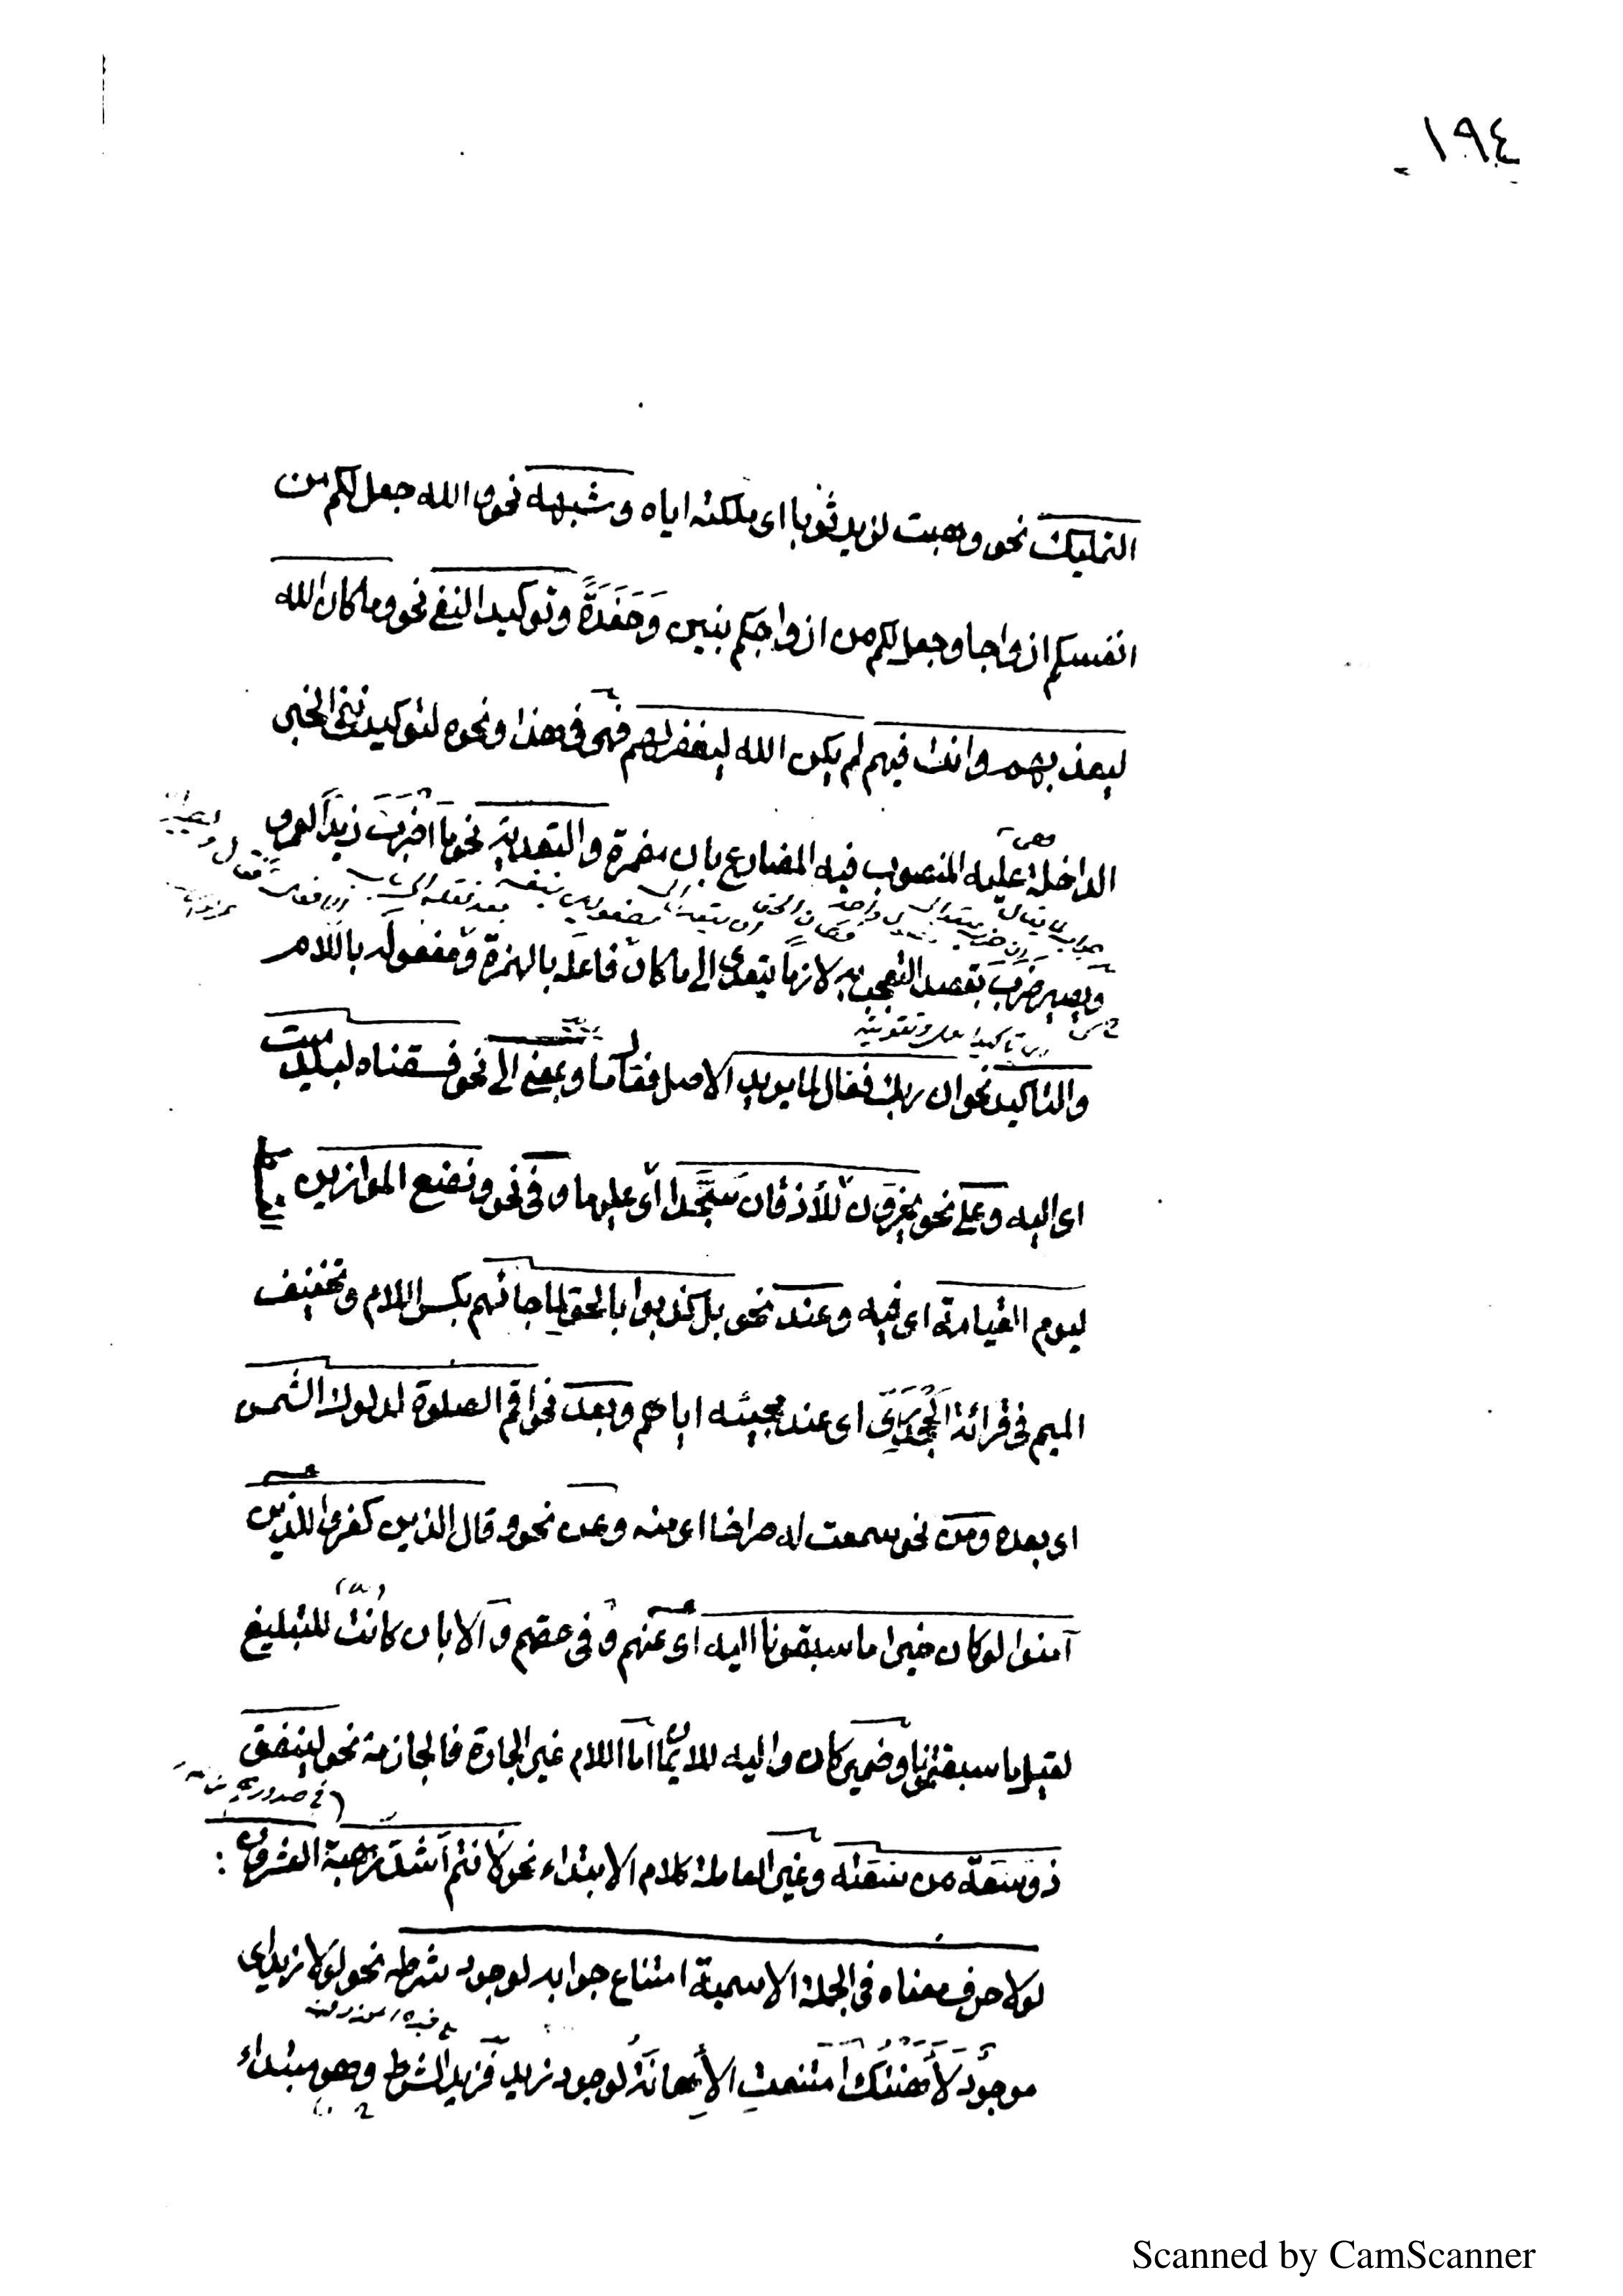 ١٩٤
التمليك نحو وهبت لزيد ثوبا اى ملكته اياه وشبهه نحو والله جعل لكم من
انفسكم ازواجا وجعل لكم من ازواجكم بنين وَحَفَدَةً وتوكيد النفى نحو وما كان الله
ليعذبهم وانت فيهم لم يكن الله ليغفر لهم فهى فى هذا ونحوه لتوكيد نفى الخبر
الداخلة عليه المنصوب فيه المضارع بان مضمرة والتعدية نحو ما اَضْرَبَ زيدًا لعمرو
ويصير ضَرُبَ بقصد التعجب به لازما يتعدى الى ما كان فاعله بالهمزة ومفعوله باللام
والتاكيد نحو ان ربك فعال لما يريد الاصل فعال ما وبمعنى الى نحو فسقناه لبلد ميت
اى اليه وعلى نحو يخرون للأذقان سجّدا اى عليها وفى نحو ونضع الموازين
ليوم القيامة اى فيه وعند نحو بل كذبوا بالحق لما جائهم بكسر اللام وتخفيف
الميم فى قرائة الجَحْدَرِى اى عند مجيئه اياهم وبعد نحو اقم الصلوة لدلوك الشمس
اى بعده ومن نحو سمعت له صراخا اى منه وعن نحو وقال الذين كفروا للذين
آمنوا لو كان خيرا ما سبقونا اليه اى عنهم وفى حقهم والا بان كانت للتبليغ
لقيل ما سبقتمونا وضمير كان واليه للايمان اما اللام غير الجارة فالجازمة نحو لينفق
ذو سَعَة من سَعَته وغير العاملة كلام الابتداء نحو لأنتم اَشَدّ رهبة العشرون :
لولا حرف معناه فى الجملة الاسمية امتناع جوابه لوجود شرطه نحو لولا زيد اى
موجود لَأَهَنْتُكَ امتنعتِ الأِهانَةُ لوجود زيد فزيد الشرط وهو مبتداء
Scanned by CamScanner